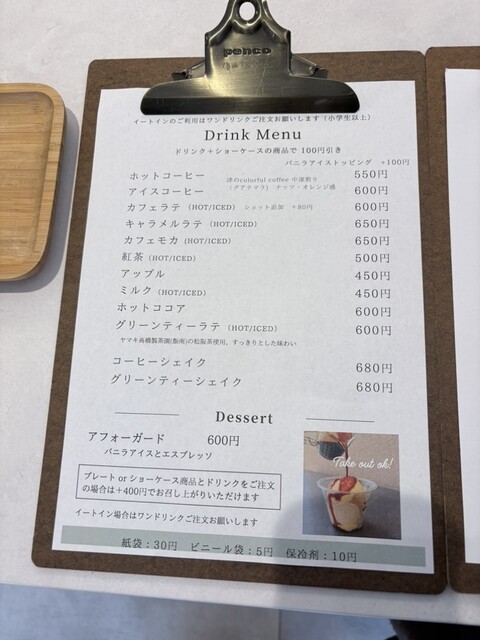 penco
イートインのご利用はワンドリンクご注文お願いします（小学生以上）
Drink Menu
ドリンク＋ショーケースの商品で 100円引き
バニラアイストッピング ＋100円
ホットコーヒー 津のcolorful coffee 中深煎り 550円
アイスコーヒー （グアテマラ） ナッツ・オレンジ感 600円
カフェラテ (HOT/ICED) ショット追加 ＋80円 600円
キャラメルラテ (HOT/ICED) 650円
カフェモカ (HOT/ICED) 650円
紅茶 (HOT/ICED) 500円
アップル 450円
ミルク (HOT/ICED) 450円
ホットココア 600円
グリーンティーラテ (HOT/ICED) 600円
ヤマキ高橋製茶園(飯南)の松阪茶使用。すっきりとした味わい
コーヒーシェイク 680円
グリーンティーシェイク 680円
Dessert
アフォーガード 600円
バニラアイスとエスプレッソ
Take out ok!
プレート or ショーケース商品とドリンクをご注文
の場合は＋400円でお召し上がりいただけます
イートイン場合はワンドリンクご注文お願いします
紙袋：30円 ビニール袋：5円 保冷剤：10円